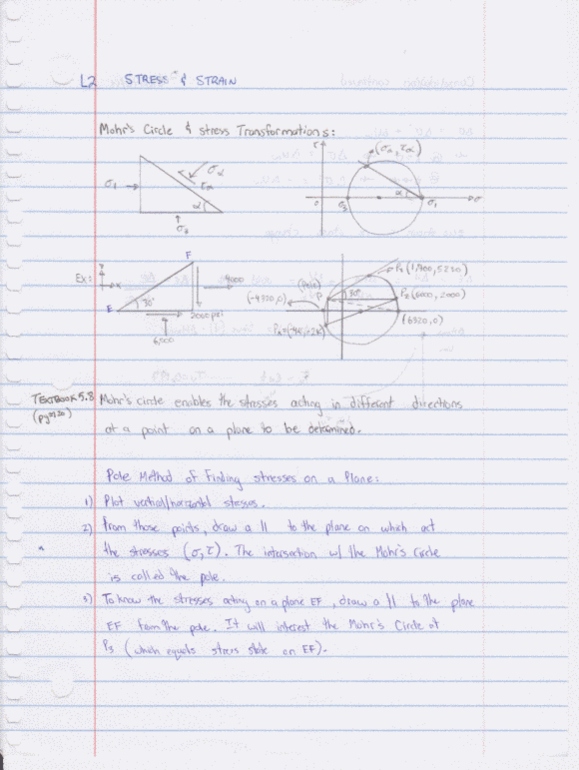 L2 STRESS & STRAIN
Mohr's Circle & stress Transformations:
σ1
σα
τα
α
τ
(σα, τα)
α
σ3
σ1
σ
Ex:
F
E
30°
4000
2000 psi
6000
(Pole)
P
30°
P2 (6000, 2000)
(6320, 0)
TEXTBOOK 5.8 Mohr's circle enables the stresses acting in different directions
at a point on a plane to be determined.
Pole Method of Finding stresses on a Plane:
1) Plot vertical/horizontal stresses.
2) From those points, draw a || to the plane on which act
the stresses (σ, τ). The intersection w/ the Mohr's Circle
is called the pole.
3) To know the stresses acting on a plane EF, draw a || to the plane
EF from the pole. It will interest the Mohr's Circle at
P3 (which equals stress state on EF).